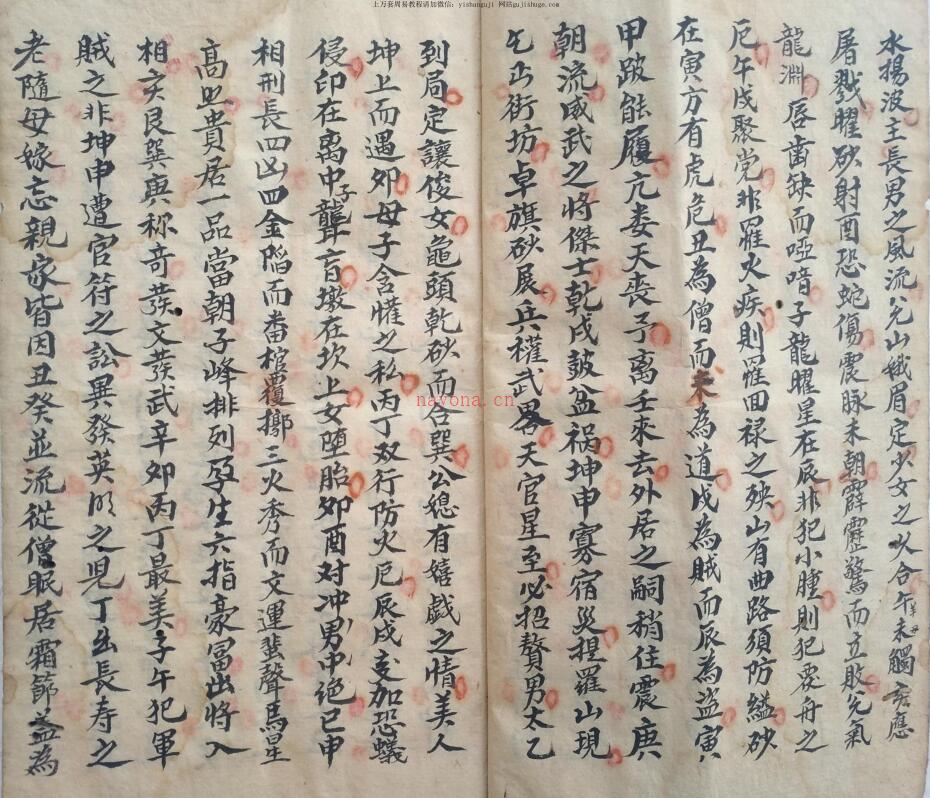 上万套周易教程请加微信:yishanguji 网站gujishuge.com
水揚波主長男之風流兌山娥眉定少女之以合午未觸亥應
屠戮曜砂射酉恐蛇傷震脉未朝霹靂驚而立敗兌氣
龍淵唇齒缺而啞喑子龍曜星在辰非犯小腫則犯覆舟之
厄午戌聚党非罹火疾則罹回禄之殃山有曲路須防縊砂
在寅方有虎危丑為僧而未為道戌為賊而辰為盜寅
甲跛能履亢娄天喪予离壬來去外居之嗣稍住震庚
朝流威武之將傑士乾戌鼓盆祸坤申寡宿災揑羅山現
乞丐街坊卓旗砂展兵權武畧天官星至必招贅男太乙
到局定讓俊女龜頭乾砂而合巽公媳有嬉戲之情美人
坤上而遇卯母子含慛之私丙丁双行防火厄辰戌支加恐蟻
侵印在离中子聾盲墩在坎上女堕胎卯酉对冲男中绝巳申
相刑長四凶四金陷而畨棺覆擲三火秀而文運蜚聲馬星
高足貴居一品當朝子峰排列孕生六指豪冨出將入
相亥艮巽與称竒發文發武辛卯丙丁最美子午犯軍
賊之非坤申遭官符之訟巽發英明之児丁出長寿之
老隨母嫁忘親家皆因丑癸並流從僧眠居霜節盖為
nayona.cn